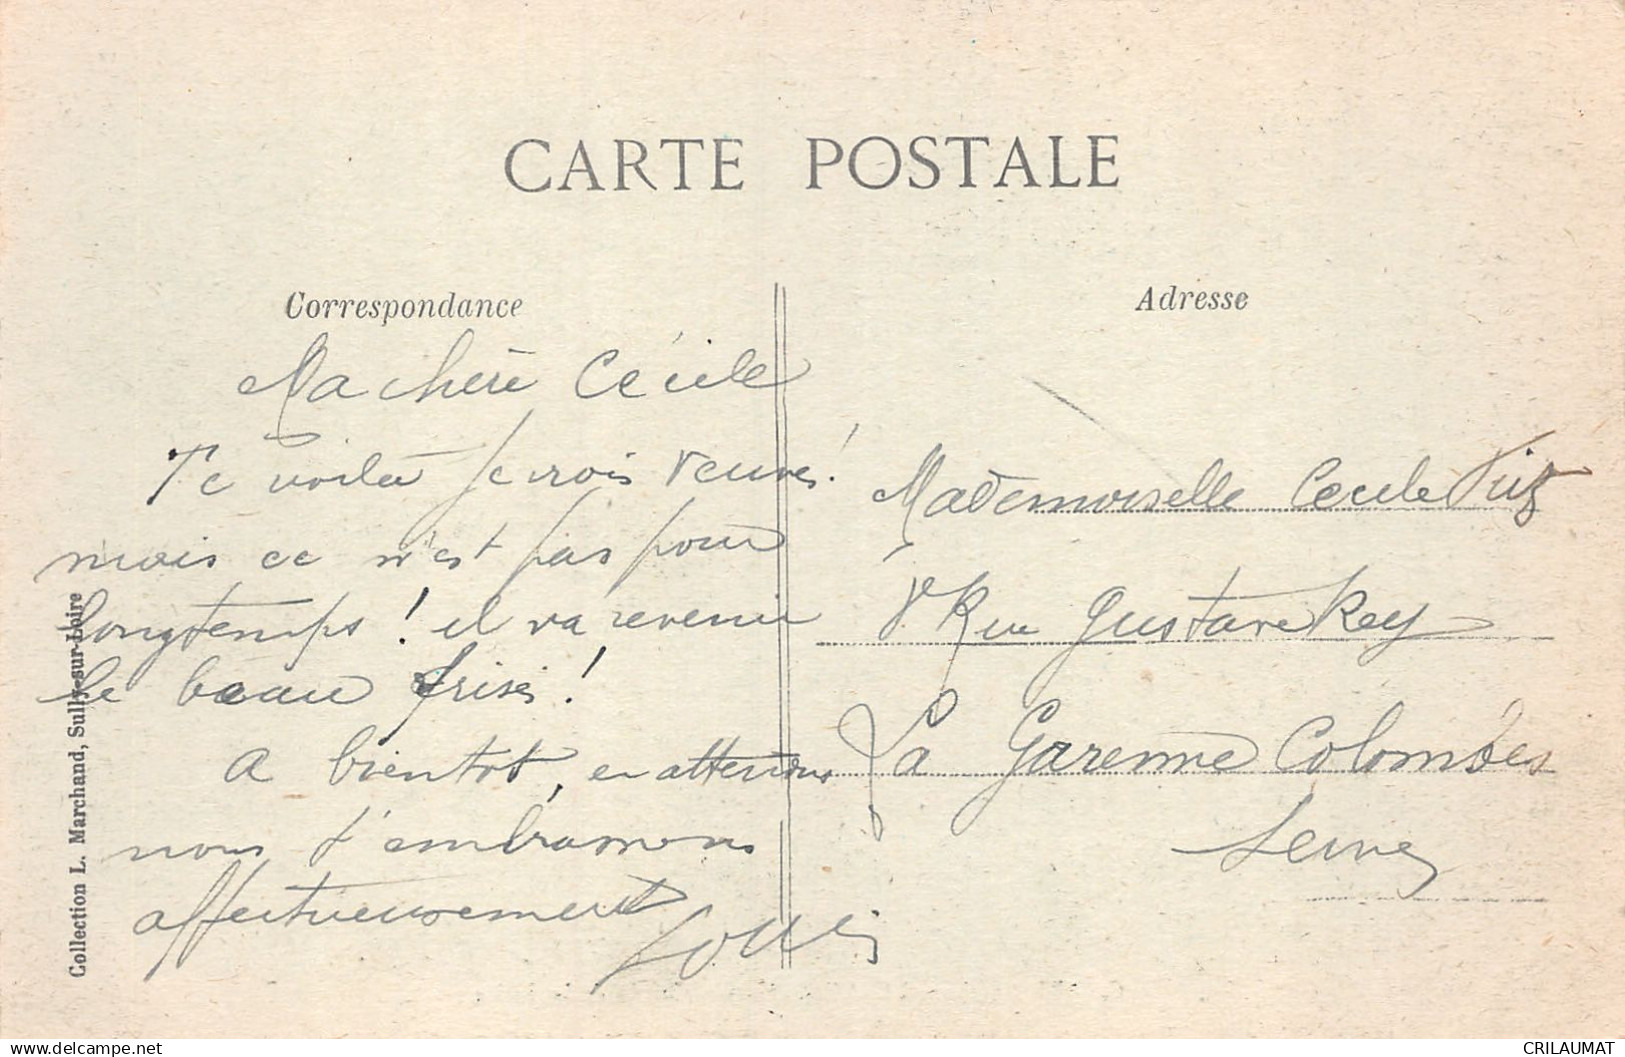 CARTE POSTALE
Correspondance
Ma chère Cécile
Te voilà je crois veuve!
mais ce n'est pas pour
longtemps! il va revenir
le beau frisé!
A bientot, en attendant
nous t'embrassons
affectueusement
Louis
Adresse
Mademoiselle Cecile
Rue Gustave Rey
La Garenne Colombes
Seine
Collection L. Marchand, Sully-sur-Loire
delcampe.net
CRILAUMAT